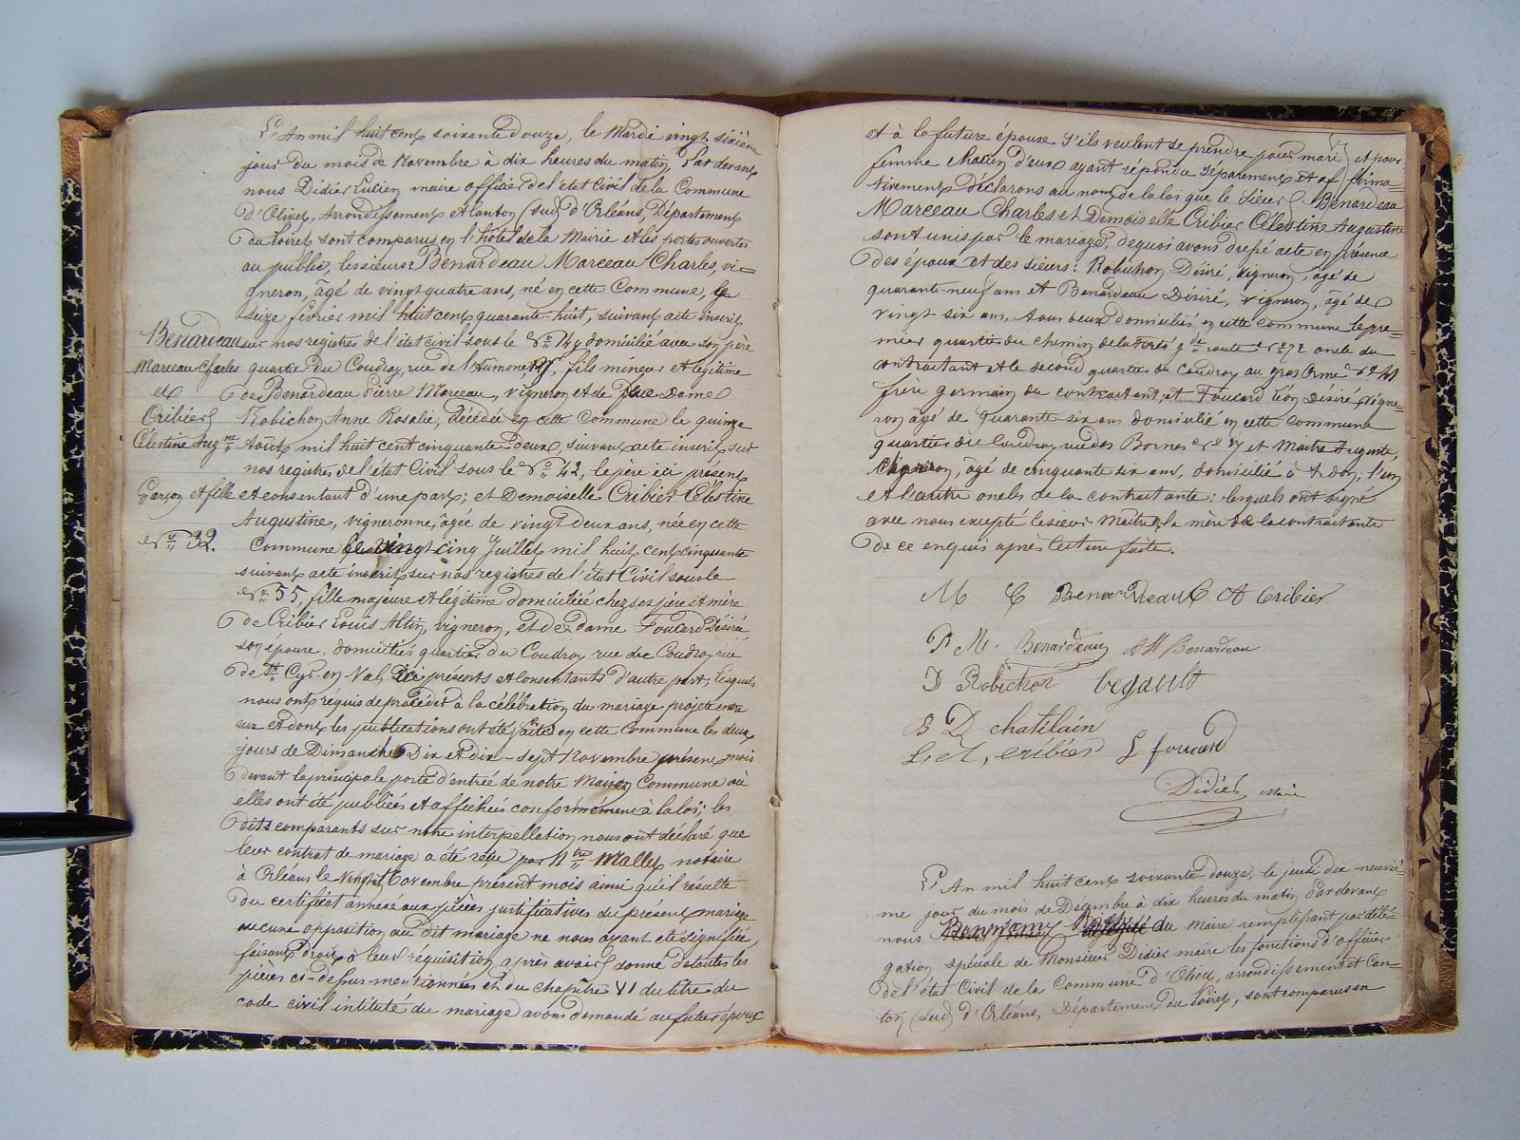 L'An mil huit cent soixante douze, le Mardi vingt sixième
jour du mois de Novembre à dix heures du matin, Par devant
nous Didier Lucien maire officier de l'etat Civil de la Commune
d'Olivet, Arrondissement et Canton (sud) d'Orléans, Département
du Loiret sont comparus en l'hôtel de la Mairie et les portes ouvertes
au public, les sieurs Benardeau Marceau Charles, vi=
gneron, âgé de vingt quatre ans, né en cette Commune, le
seize février mil huit cent quarante huit, suivant acte inscrit
sur nos registres de l'état civil sous le No 14, domicilié avec son père
quartier du Coudray, rue de l'Aumone, fils mineur et légitime
de Benardeau Pierre Marceau, vigneron, et de Dame
Robichon Anne Rosalie, décédée en cette Commune le quinze
Août mil huit cent cinquante deux, suivant acte inscrit sur
nos registres de l'état Civil sous le No 42, le père ici présent
et consentant d'une part; et Demoiselle Cribier Célestine
Augustine, vigneronne, âgée de vingt deux ans, née en cette
Commune le vingt cinq Juillet mil huit cent cinquante
suivant acte inscrit sur nos registres de l'état Civil sous le
No 55, fille majeure et légitime domiciliée chez ses père et mère
de Cribier Louis Altin, vigneron, et de Dame Foucard Désirée
son épouse, domiciliés quartier du Coudray rue du Coudray rue
de St Cyr en Val, ici présents et consentants d'autre part; lesquels
nous ont réquis de procéder à la célébration du mariage projeté entre
eux et dont les publications ont été faites en cette Commune les deux
jours de Dimanche Dix et dix-sept Novembre présent mois
devant la principale porte d'entrée de notre Maison Commune où
elles ont été publiées et affichées conformément à la loi; les
dits comparants sur notre interpellation nous ont déclaré que
leur contrat de mariage a été reçu par Mtre Malle, notaire
à Orléans le Novembre présent mois ainsi qu'il résulte
du certificat annexé aux pièces justificatives du présent mariage
aucune opposition au dit mariage ne nous ayant été signifiée,
faisant droit à leur réquisition, après avoir donné de toutes les
pièces ci-dessus mentionnées et du chapitre VI du titre du
code civil intitulé du mariage avons demandé au futur époux
Benardeau
Marceau Charles
et
Cribier
Célestine Augne
Garçon et fille
No 32.
et à la future épouse s'ils veulent se prendre pour mari et pour
femme chacun d'eux ayant répondu séparement et affirma=
tivement Déclarons au nom de la loi que le Sieur Benardeau
Marceau Charles et Demoiselle Cribier Célestine Augustine
sont unis par le mariage, de quoi avons dressé acte en présence
des époux et des sieurs: Robichon Désiré, vigneron, âgé de
quarante neuf ans et Benardeau Désiré, vigneron, âgé de
vingt six ans, tous deux domiciliés en cette commune le pre=
mier quartier du chemin de la Ferté gde route No 272 oncle du
contractant et le second quartier du Coudray au gros Orme No 241
frère germain du contractant, et Foucard Léon Désiré vigne=
ron âgé de quarante six ans domicilié en cette commune
quartier du Coudray rue des Bornes No 27 et Maitre Auguste,
vigneron, âgé de cinquante six ans, domicilié à Ardon, l'un
et l'autre oncles de la contractante: lesquels ont signé
avec nous excepté le sieur Maitre, la mère de la contractante
de ce enquis après lecture faite.
M C Benardeau C A Cribier
P M. Benardeau A M Benardeau
D Robichon Legault
B D chatelain
L. A. cribier L foucard
Didier, maire
L'An mil huit cent soixante douze, le jeudi dix neuviè=
me jour du mois de Décembre à dix heures du matin, Par devant
nous du Maire remplissant par délé
gation spéciale de Monsieur Didier maire les fonctions d'officier
de l'état Civil de la Commune d'Olivet, arrondissement et Can=
ton (sud) d'Orléans, Département du Loiret, sont comparus en